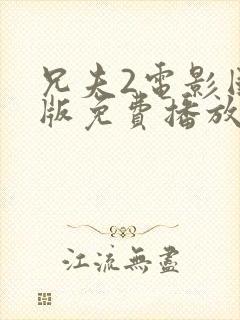 兄夫2電影
版免費播放
江流無盡